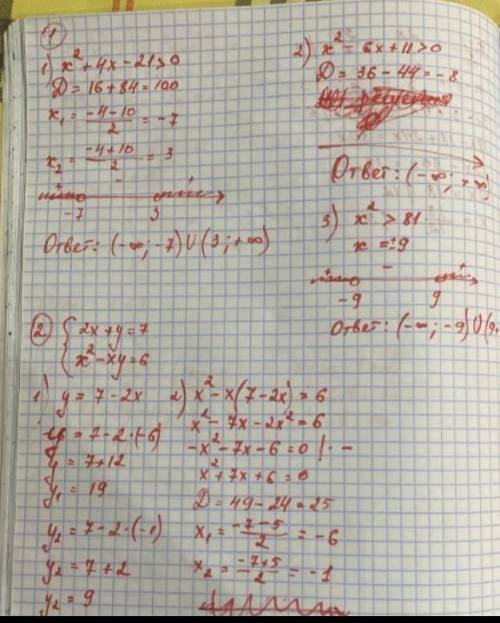 ①
1) x² + 4x - 21 > 0
D = 16 + 84 = 100
x₁ = (-4-10)/2 = -7
x₂ = (-4+10)/2 = 3
+ - +
-7 3
Ответ: (-∞; -7) ∪ (3; +∞)
2) x² - 6x + 11 > 0
D = 36 - 44 = -8
Ответ: (-∞; +∞
3) x² > 81
x = ±9
+ - +
-9 9
Ответ: (-∞; -9) ∪ (9;
② { 2x + y = 7
x² - xy = 6
1) y = 7 - 2x
y = 7 - 2·(-6)
y = 7 + 12
y₁ = 19
y₂ = 7 - 2·(-1)
y₂ = 7 + 2
y₂ = 9
2) x² - x(7 - 2x) = 6
x² - 7x - 2x² = 6
-x² - 7x - 6 = 0 | · -
x² + 7x + 6 = 0
D = 49 - 24 = 25
x₁ = (-7-5)/2 = -6
x₂ = (-7+5)/2 = -1